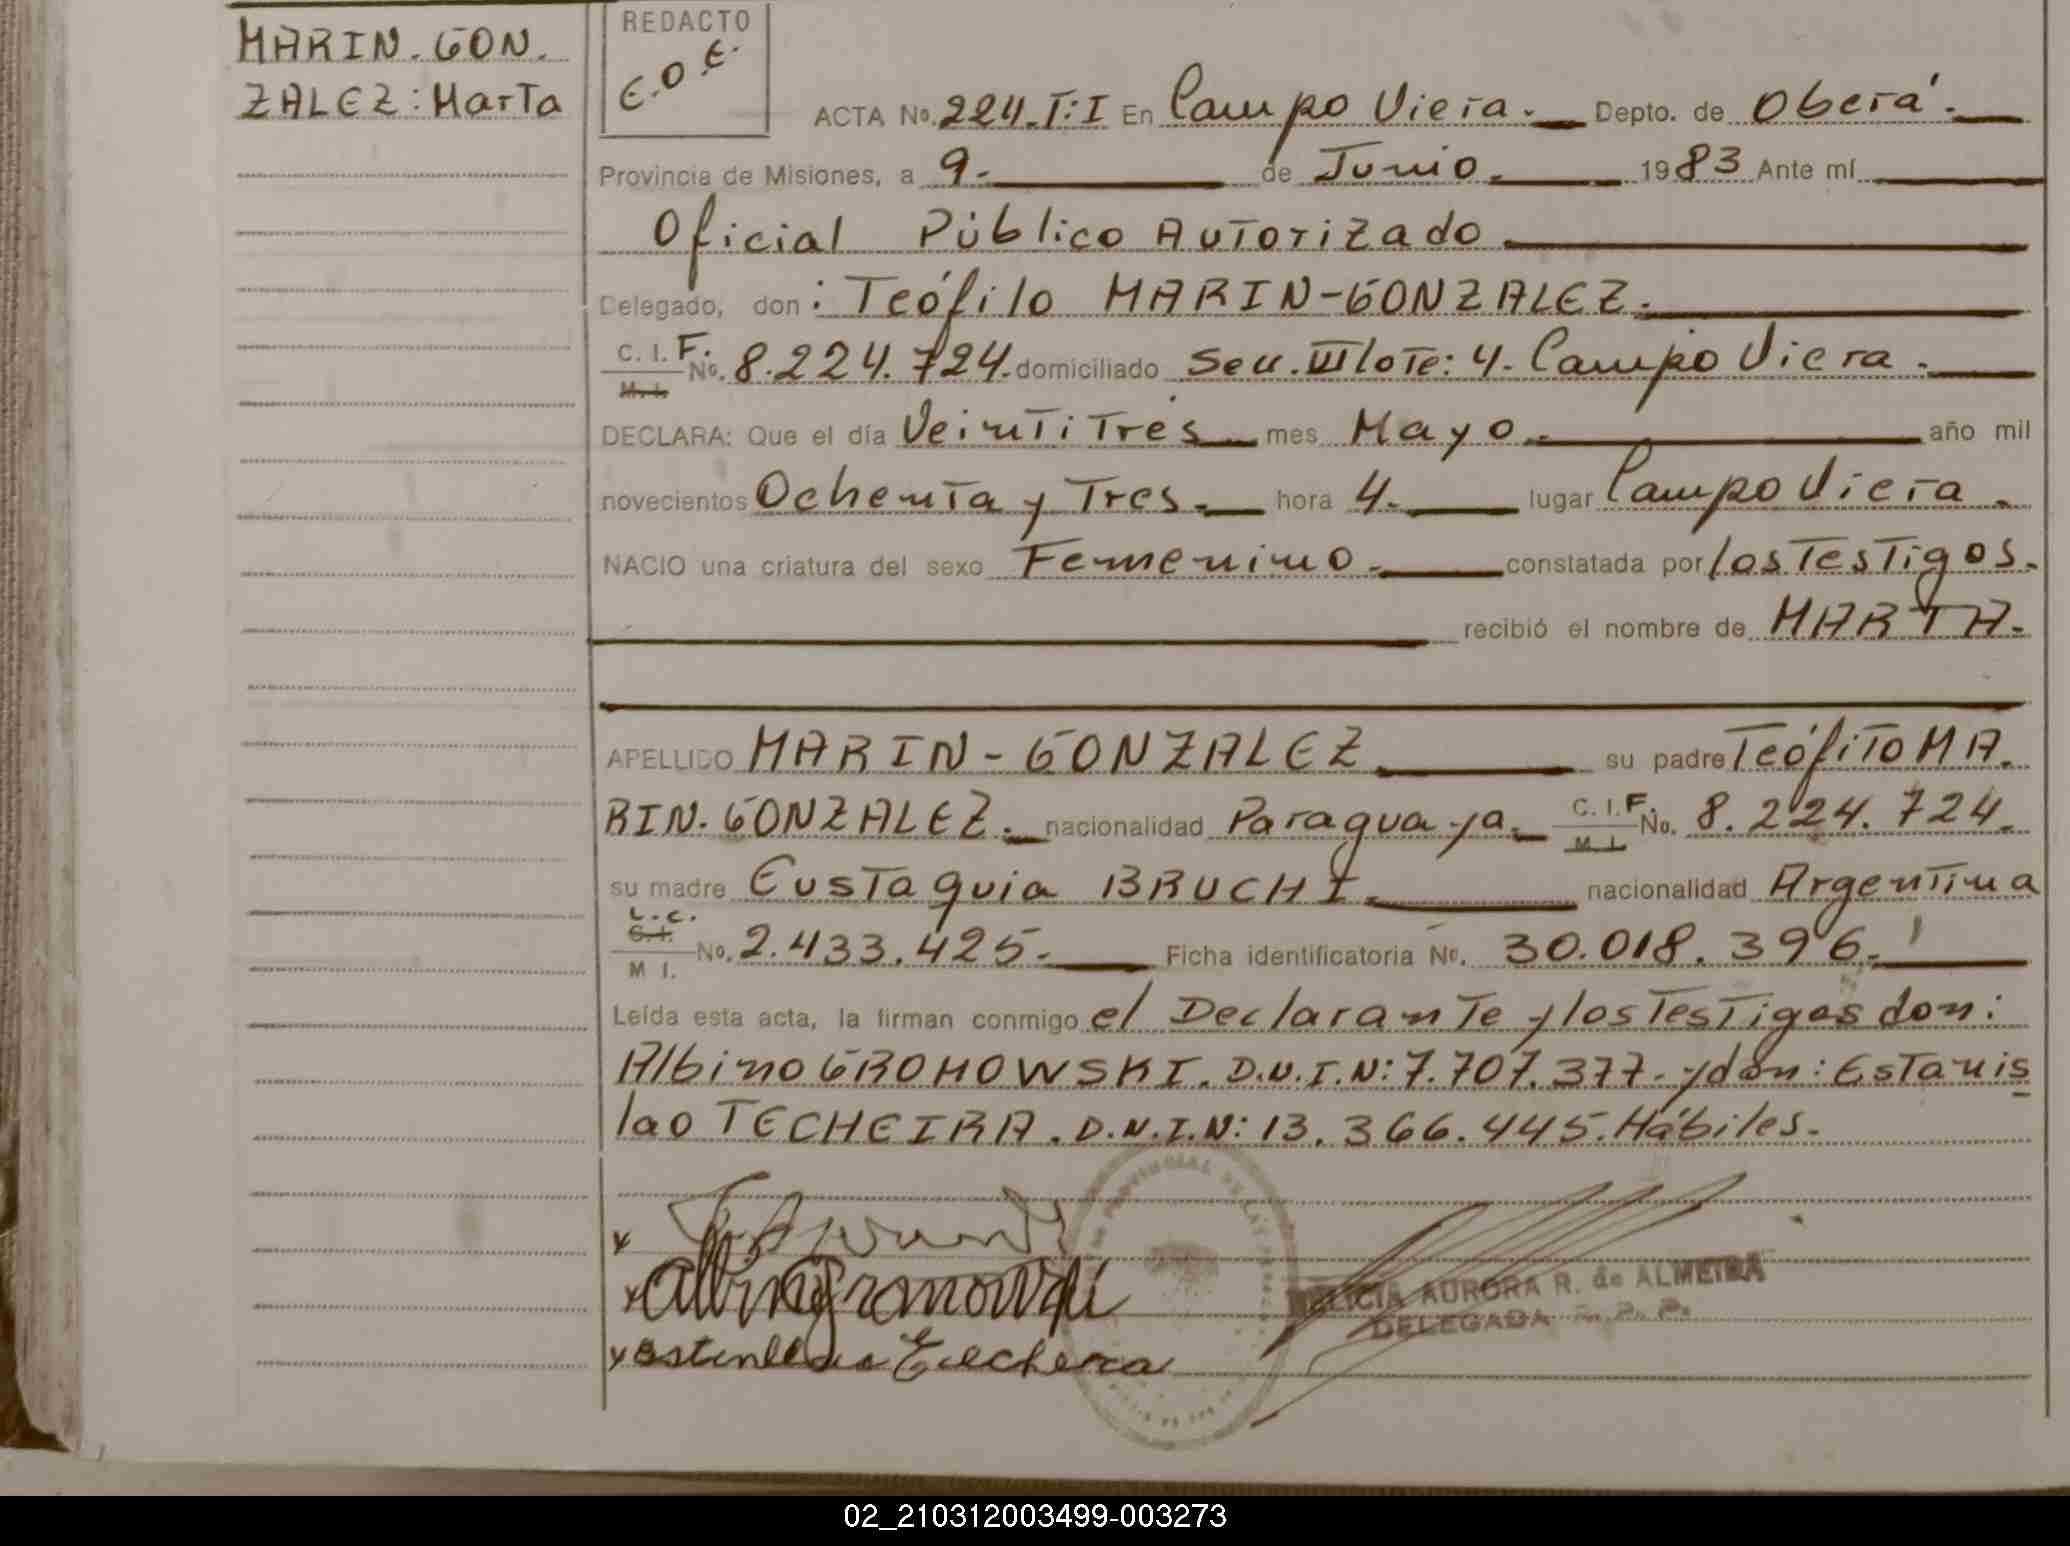 MARIN. GON.
ZALEZ: Marta
REDACTO
E.O.E.
ACTA No. 224. T: I En Campo Viera. Depto. de Oberá.
Provincia de Misiones, a 9. de Junio. 1983 Ante mí
Oficial Público Autorizado
Delegado, don: Teófilo MARIN-GONZALEZ.
C. I. F. M. I. No. 8.224.724. domiciliado Secc. III lote: 4. Campo Viera.
DECLARA: Que el día Veintitrés mes Mayo. año mil
novecientos Ochenta y Tres. hora 4. lugar Campo Viera.
NACIO una criatura del sexo Femenino. constatada por los Testigos.
recibió el nombre de MARTA.
APELLIDO MARIN-GONZALEZ su padre Teófito MA.
RIN. GONZALEZ. nacionalidad Paraguaya. C. I. F. M. I. No. 8.224.724.
su madre Eustaquia BRUCHI. nacionalidad Argentina
L.C. C.I. M I. No. 2.433.425. Ficha identificatoria No. 30.018.396.
Leída esta acta, la firman conmigo el Declarante y los Testigos don:
Albino GROMOWSKI. D.N.I.N: 7.707.377. y don: Estanis
lao TECHEIRA. D.N.I.N: 13.366.445. Hábiles.
FELICIA AURORA R. de ALMEIRA
DELEGADA R. P. P.
02_210312003499-003273